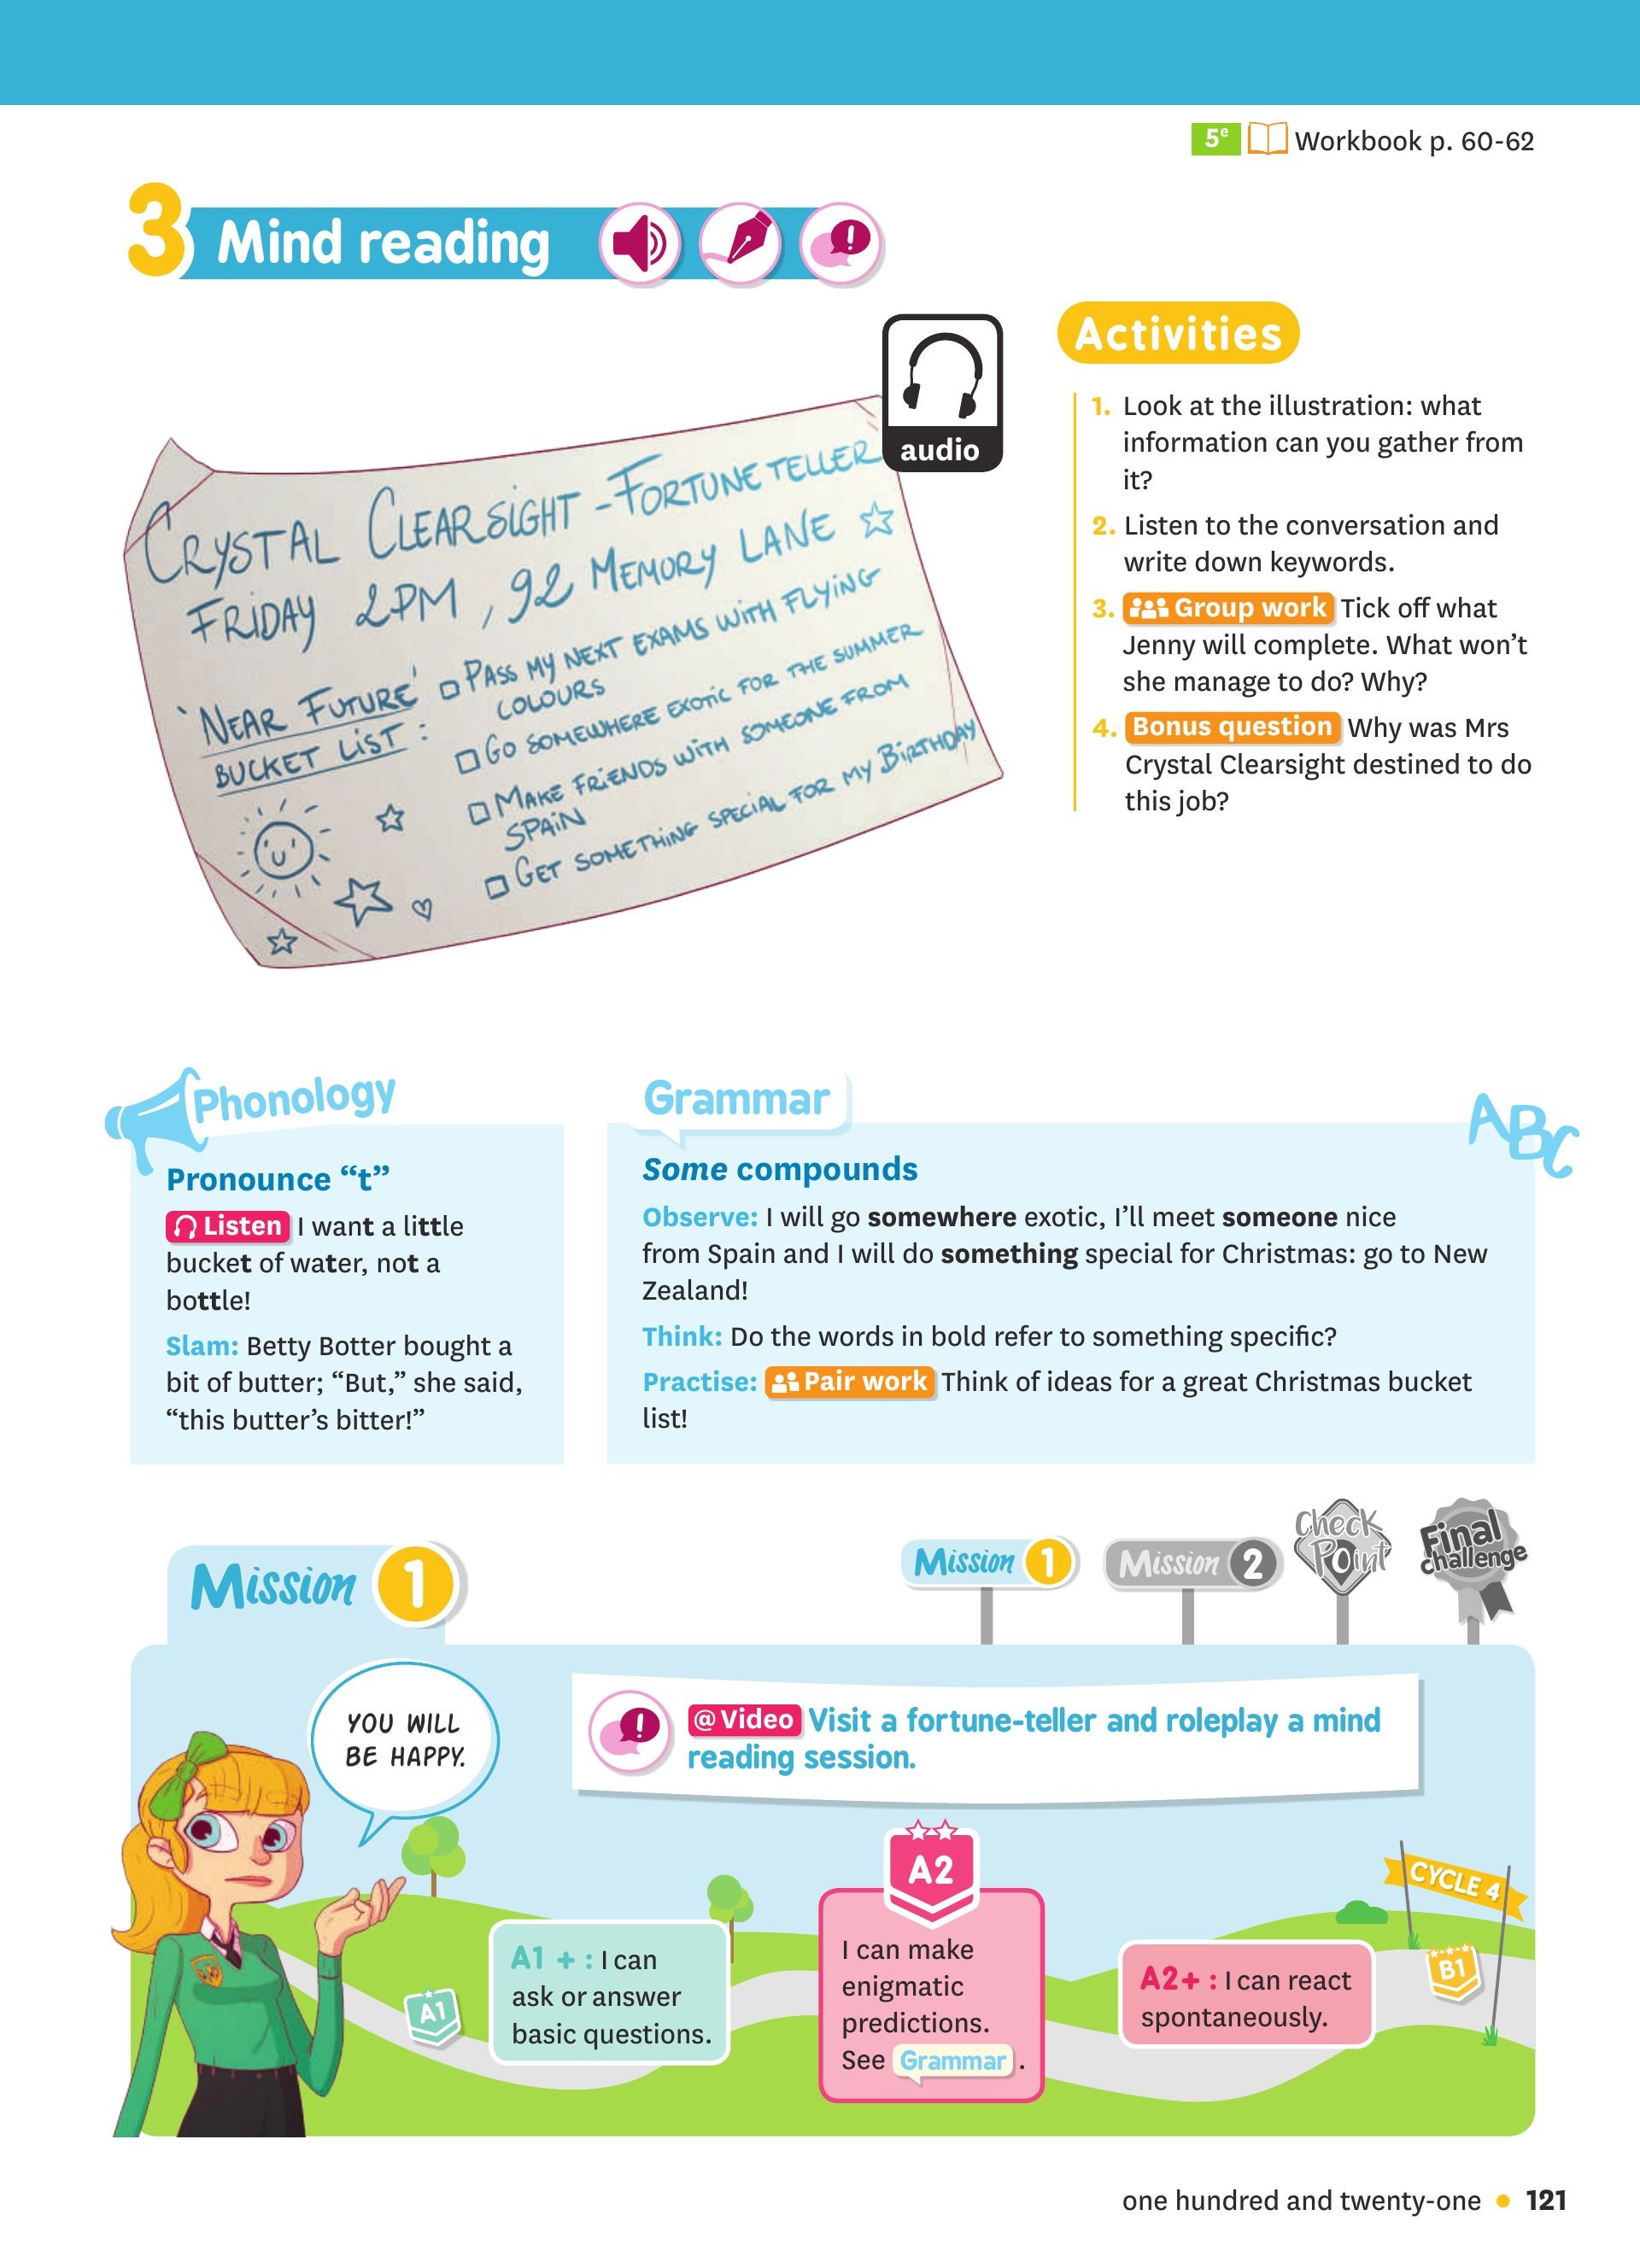 5e Workbook p. 60-62
3 Mind reading
audio
CRYSTAL CLEARSIGHT - FORTUNE TELLER
FRIDAY 2PM, 92 MEMORY LANE
'NEAR FUTURE'
BUCKET LIST :
PASS MY NEXT EXAMS WITH FLYING
COLOURS
GO SOMEWHERE EXOTIC FOR THE SUMMER
MAKE FRIENDS WITH SOMEONE FROM
SPAIN
GET SOMETHING SPECIAL FOR MY BIRTHDAY
Activities
1. Look at the illustration: what
information can you gather from
it?
2. Listen to the conversation and
write down keywords.
3. Group work Tick off what
Jenny will complete. What won't
she manage to do? Why?
4. Bonus question Why was Mrs
Crystal Clearsight destined to do
this job?
Phonology
Pronounce “t”
Listen I want a little
bucket of water, not a
bottle!
Slam: Betty Botter bought a
bit of butter; “But,” she said,
“this butter's bitter!”
Grammar
ABC
Some compounds
Observe: I will go somewhere exotic, I'll meet someone nice
from Spain and I will do something special for Christmas: go to New
Zealand!
Think: Do the words in bold refer to something specific?
Practise: Pair work Think of ideas for a great Christmas bucket
list!
Mission 1
Mission 1
Mission 2
Check
Point
Final
challenge
YOU WILL
BE HAPPY.
@ Video Visit a fortune-teller and roleplay a mind
reading session.
A1
A1 + : I can
ask or answer
basic questions.
A2
I can make
enigmatic
predictions.
See Grammar .
A2+ : I can react
spontaneously.
B1
CYCLE 4
one hundred and twenty-one • 121